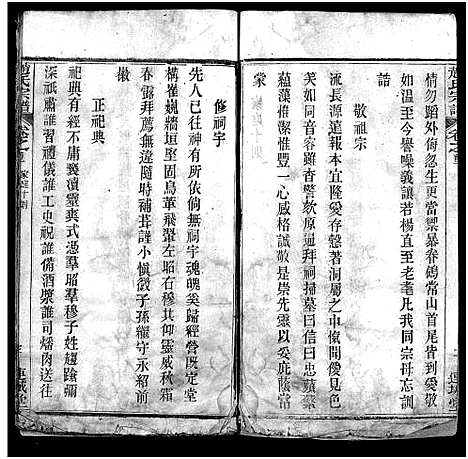 趙氏宗譜
情勿踰外侮忽生更當禦暴春鶴常山首尾皆到愛敬
如流至今景譽噪義讓若楊直至老耄凡我同宗毋忘
敬祖宗
流長源遠報本宜隆愛存慤著洞屬之中愾聞僾見
笑如同音容雖杳警欬原通拜祠掃墓曰信曰忠蘋蘩
蘊藻惟潔惟豐一心感格誠敬是崇先靈以妥庇蔭當
蒙
修祠宇
先人已往神有所依倘無祠宇魂魄奚歸經營既定堂
構崔巍牆垣鞏固鳥革飛翬左昭右穆其仰靈威秋霜
春露拜薦無違隨時補葺謹小慎微子孫繼守永紹前
徽
正祀典
祀典有經不庸褻瀆靈爽式憑羣昭羣穆子姓趨蹌肅
深祗肅誰習禮儀誰工史祝誰備酒漿誰司燔肉送往
趙氏宗譜
卷之首
家庭十詠